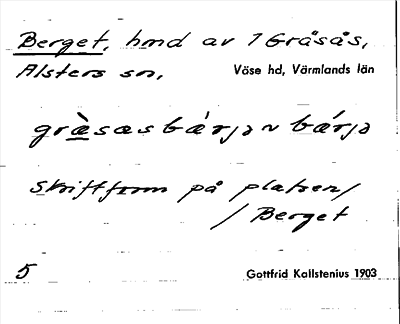 Berget, hmd av 1 Gråsås,
Alsters sn, Väse hd, Värmlands län
gràsasbárjə ~ bárjə
Skriftform på platsen /
/ Berget
5 Gottfrid Kallstenius 1903